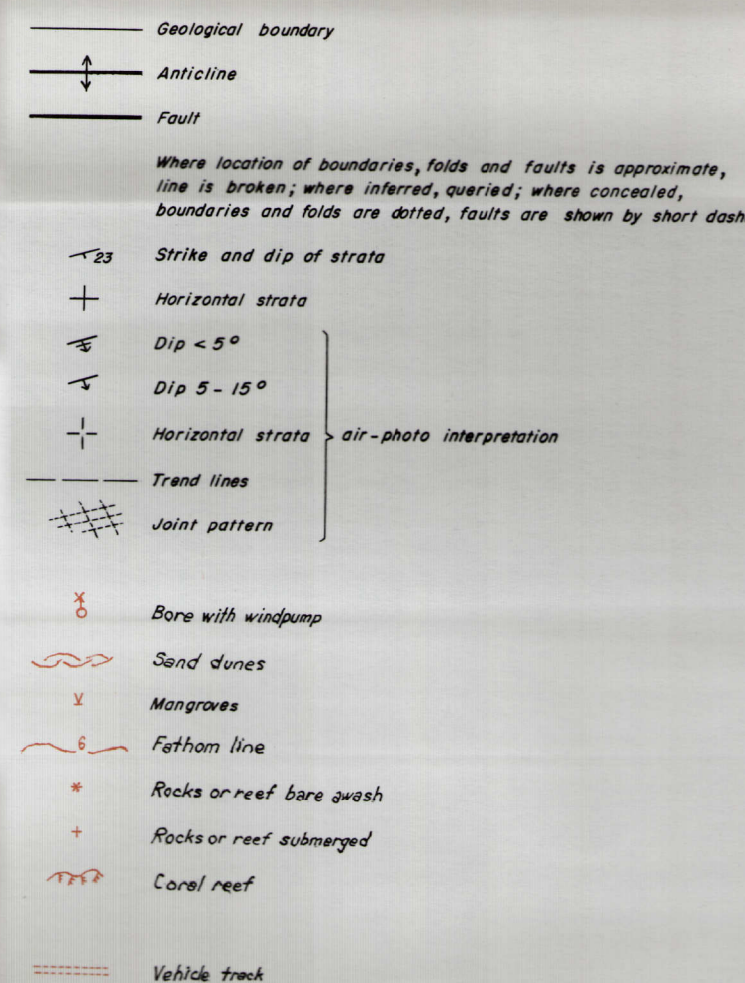 Geological boundary
Anticline
Fault
Where location of boundaries, folds and faults is approximate,
line is broken; where inferred, queried; where concealed,
boundaries and folds are dotted, faults are shown by short dash
23 Strike and dip of strata
Horizontal strata
Dip < 5°
Dip 5 - 15°
Horizontal strata air-photo interpretation
Trend lines
Joint pattern
Bore with windpump
Sand dunes
Mangroves
6 Fathom line
Rocks or reef bare awash
Rocks or reef submerged
Coral reef
Vehicle track